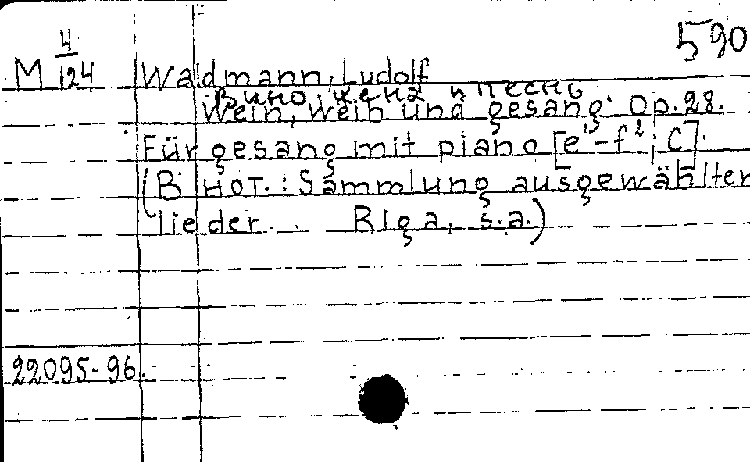 590
M 4/124 Waldmann, Ludolf
Вино, жена и песнь
Wein, weib und gesang. Op. 28.
Für gesang mit piano [e¹-f²; C].
(В нот.: Sammlung ausgewählter
lieder. Riga, s.a.)
22095-96.